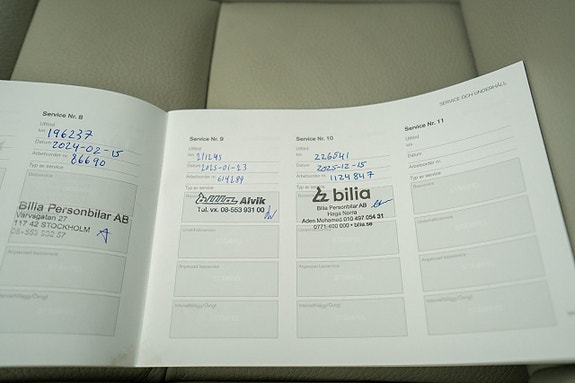 SERVICE OCH UNDERHÅLL
Service Nr. 8
Utförd
km 196237
Datum 2024-02-15
Arbetsorder nr. 86690
Bilia Personbilar AB
Varvsgatan 27
117 42 STOCKHOLM
Service Nr. 9
Utförd
km 211245
Datum 2025-01-23
Arbetsorder nr. 614289
Typ av service
Basservice
bilia Alvik
Tul. vx. 08-553 931 00
Underhållsservice
Anpassad basservice
Intervalltillägg/Övrigt
Service Nr. 10
Utförd
km 226541
Datum 2025-12-15
Arbetsorder nr. 1124847
Typ av service
bilia
Bilia Personbilar AB
Haga Norra
Aden Mohamed 010 497 054 31
0771-400 000 • bilia.se
Underhållsservice
Anpassad basservice
Intervalltillägg/Övrigt
Service Nr. 11
Utförd
km
Datum
Arbetsorder nr.
Typ av service
Basservice
Underhållsservice
Anpassad basservice
Intervalltillägg/Övrigt